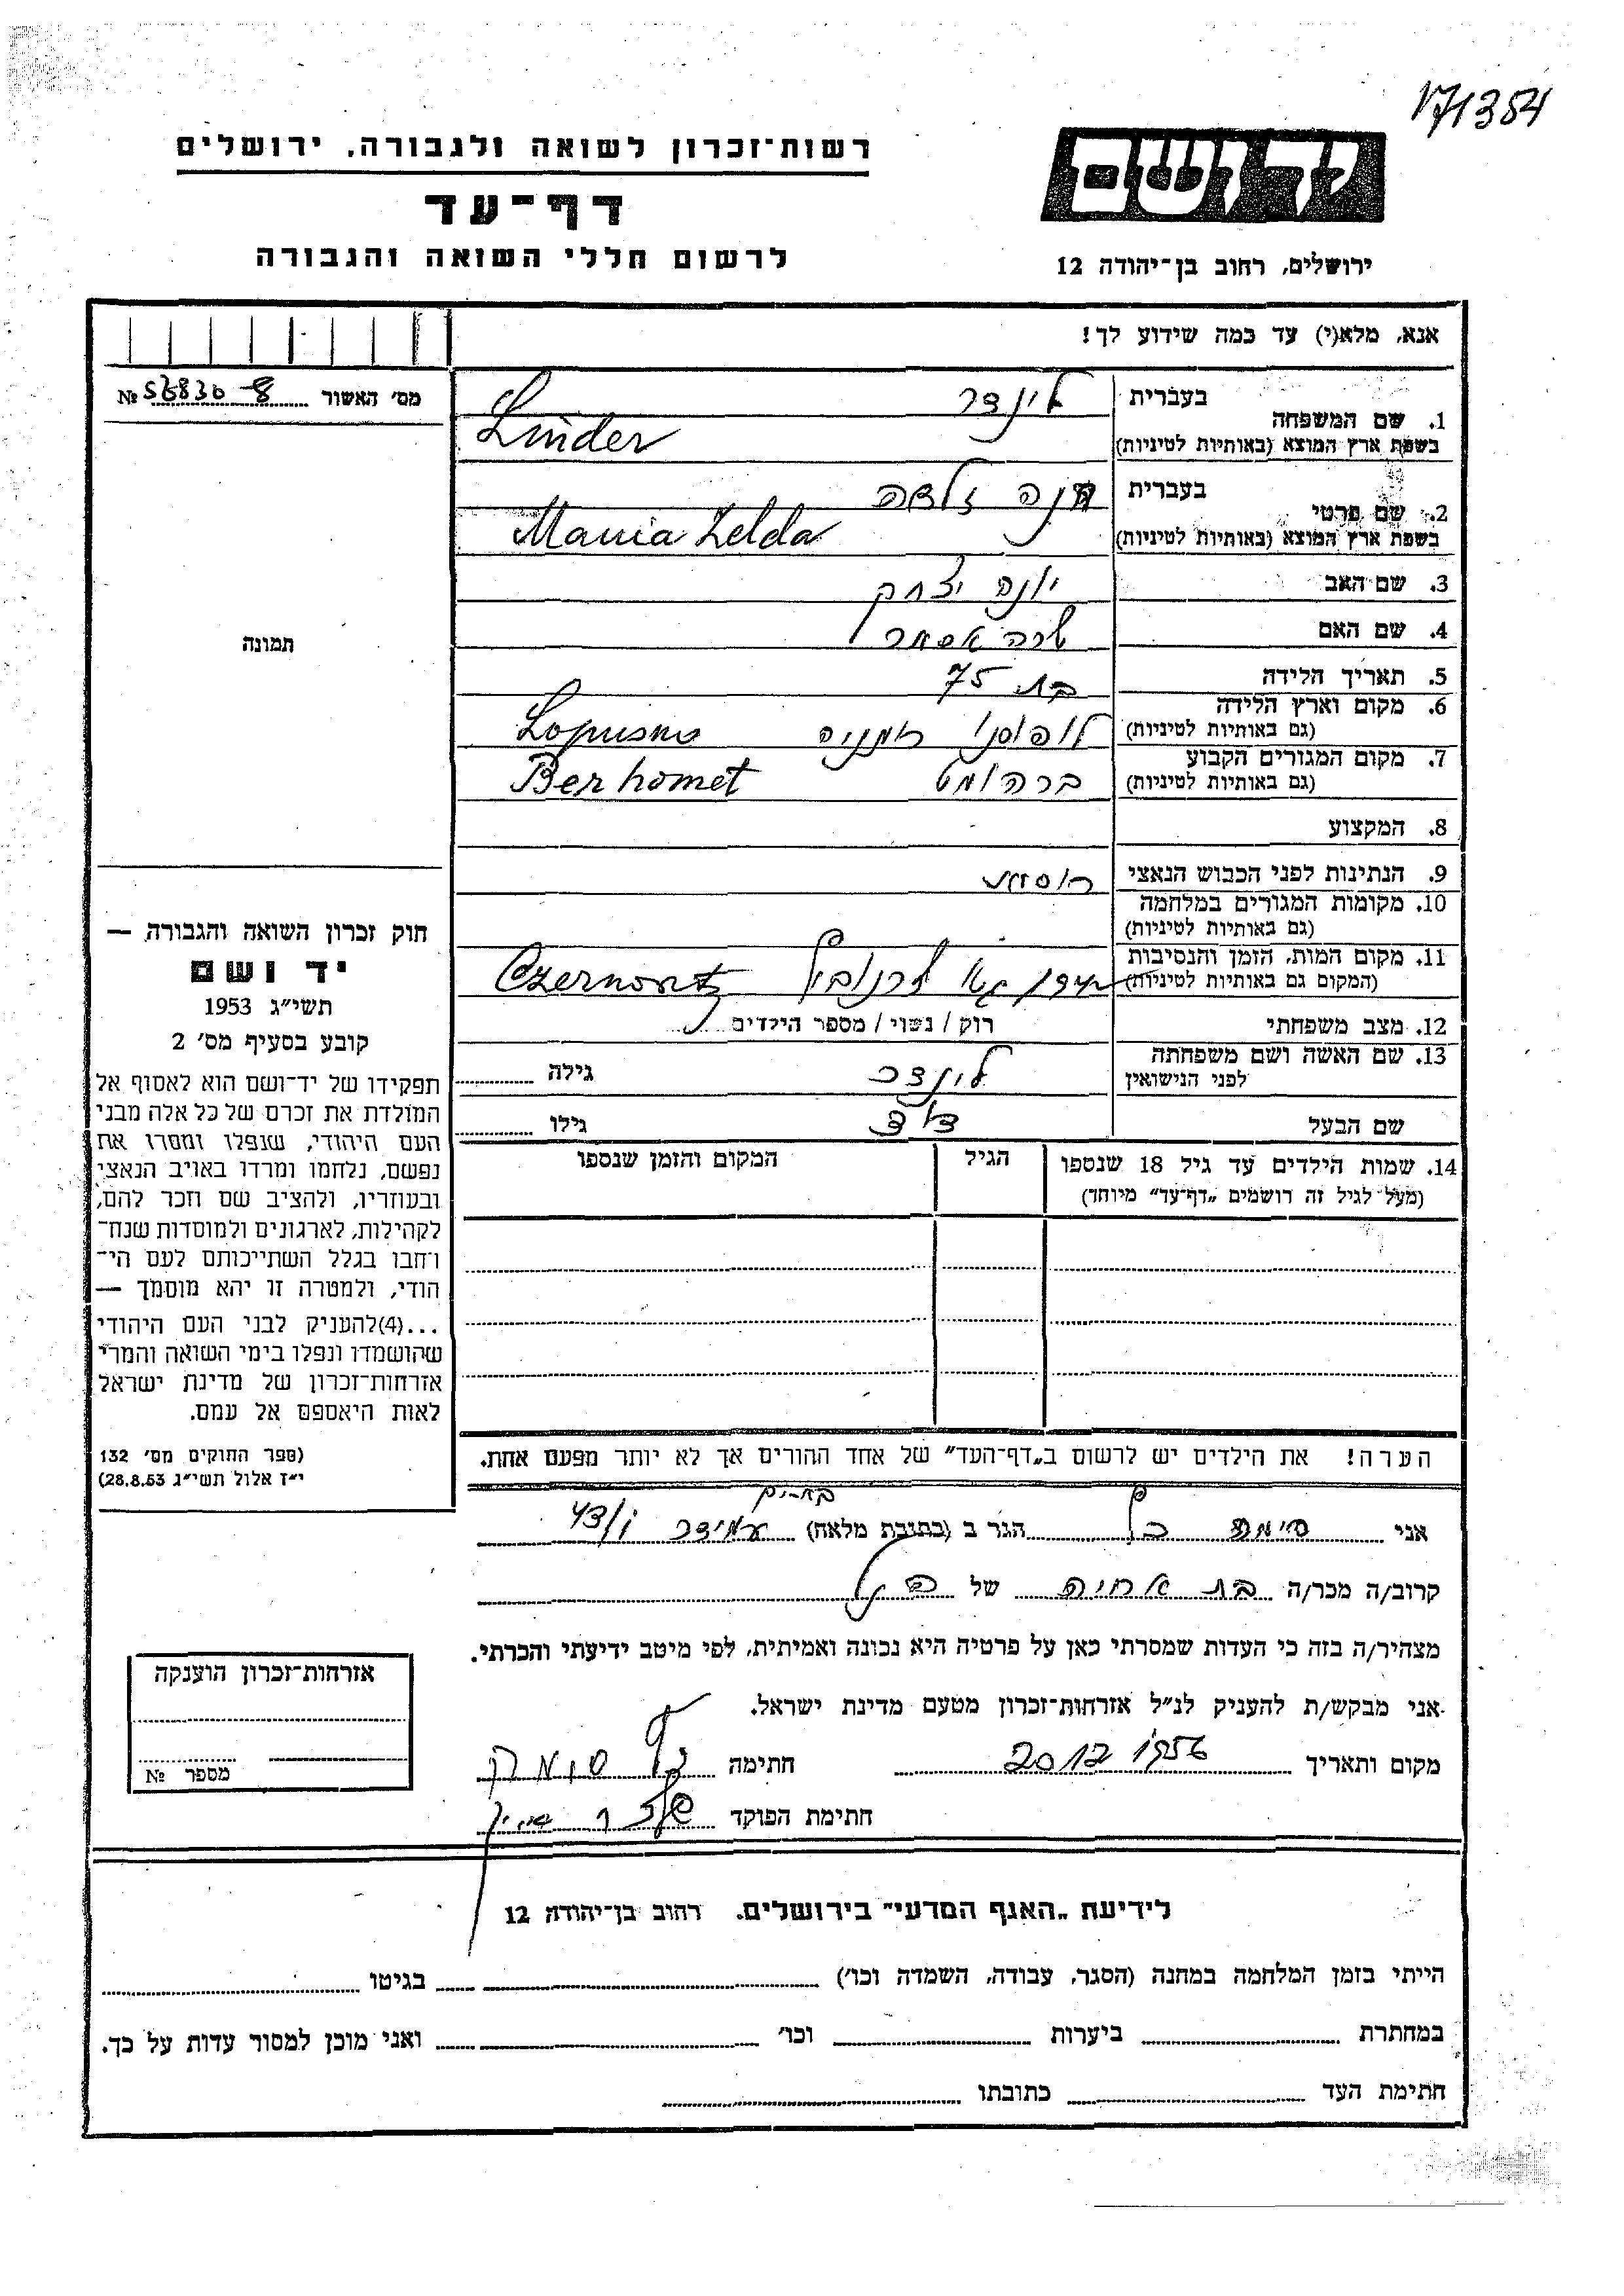 171354
יד ושם
ירושלים, רחוב בן־יהודה 12
רשות־זכרון לשואה ולגבורה, ירושלים
דף־עד
לרשום חללי השואה והגבורה
אנא, מלא(י) עד כמה שידוע לך!
מס' האשור № 56830-8
תמונה
1. שם המשפחה בעברית לינדר
בשפת ארץ המוצא (באותיות לטיניות) Linder
2. שם פרטי בעברית זלדה
בשפת ארץ המוצא (באותיות לטיניות) Mania Zelda
3. שם האב יונה יצחק
4. שם האם שרה אסתר
5. תאריך הלידה בת 75
6. מקום וארץ הלידה
(גם באותיות לטיניות) רומניה Lopusno
7. מקום המגורים הקבוע
(גם באותיות לטיניות) ברהומט Berhomet
8. המקצוע
9. הנתינות לפני הכבוש הנאצי
10. מקומות המגורים במלחמה
(גם באותיות לטיניות)
11. מקום המות, הזמן והנסיבות
(המקום גם באותיות לטיניות) גטו
12. מצב משפחתי רוק / נשוי / מספר הילדים
13. שם האשה ושם משפחתה
לפני הנישואין לינדר גילה
שם הבעל דוד גילו
14. שמות הילדים עד גיל 18 שנספו הגיל המקום והזמן שנספו
(מעל לגיל זה רושמים „דף־עד” מיוחד)
הערה! את הילדים יש לרשום ב„דף־העד” של אחד ההורים אך לא יותר מפעם אחת.
חוק זכרון השואה והגבורה —
יד ושם
תשי״ג 1953
קובע בסעיף מס' 2
תפקידו של יד־ושם הוא לאסוף אל
המולדת את זכרם של כל אלה מבני
העם היהודי, שנפלו ומסרו את
נפשם, נלחמו ומרדו באויב הנאצי
ובעוזריו, ולהציב שם וזכר להם,
לקהילות, לארגונים ולמוסדות שנח־
רבו בגלל השתייכותם לעם הי־
הודי, ולמטרה זו יהא מוסמך —
...(4)להעניק לבני העם היהודי
שהושמדו ונפלו בימי השואה והמרי
אזרחות־זכרון של מדינת ישראל
לאות היאספם אל עמם.
(ספר החוקים מס' 132
י״ז אלול תשי״ג 28.8.53)
אני הגר ב (כתובת מלאה) עמידר 43/1
קרוב/ה מכר/ה בת אחיה של
מצהיר/ה בזה כי העדות שמסרתי כאן על פרטיה היא נכונה ואמיתית, לפי מיטב ידיעתי והכרתי.
אני מבקש/ת להעניק לנ״ל אזרחות־זכרון מטעם מדינת ישראל.
מקום ותאריך 20 12 1956 חתימה
חתימת הפוקד
אזרחות־זכרון הוענקה
מספר №
לידיעת „האגף המדעי” בירושלים, רחוב בן־יהודה 12
הייתי בזמן המלחמה במחנה (הסגר, עבודה, השמדה וכו') בגיטו
במחתרת ביערות וכו' ואני מוכן למסור עדות על כך.
חתימת העד כתובתו